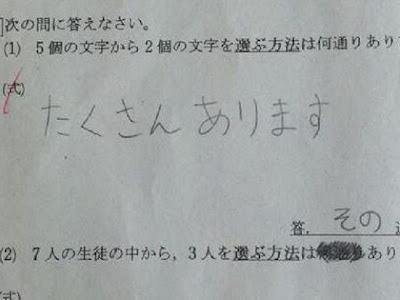 ]次の問に答えなさい。
(1) 5個の文字から2個の文字を選ぶ方法は何通りあり
(式)
たくさんあります
答. その
(2) 7人の生徒の中から,3人を選ぶ方法は あり
(式)